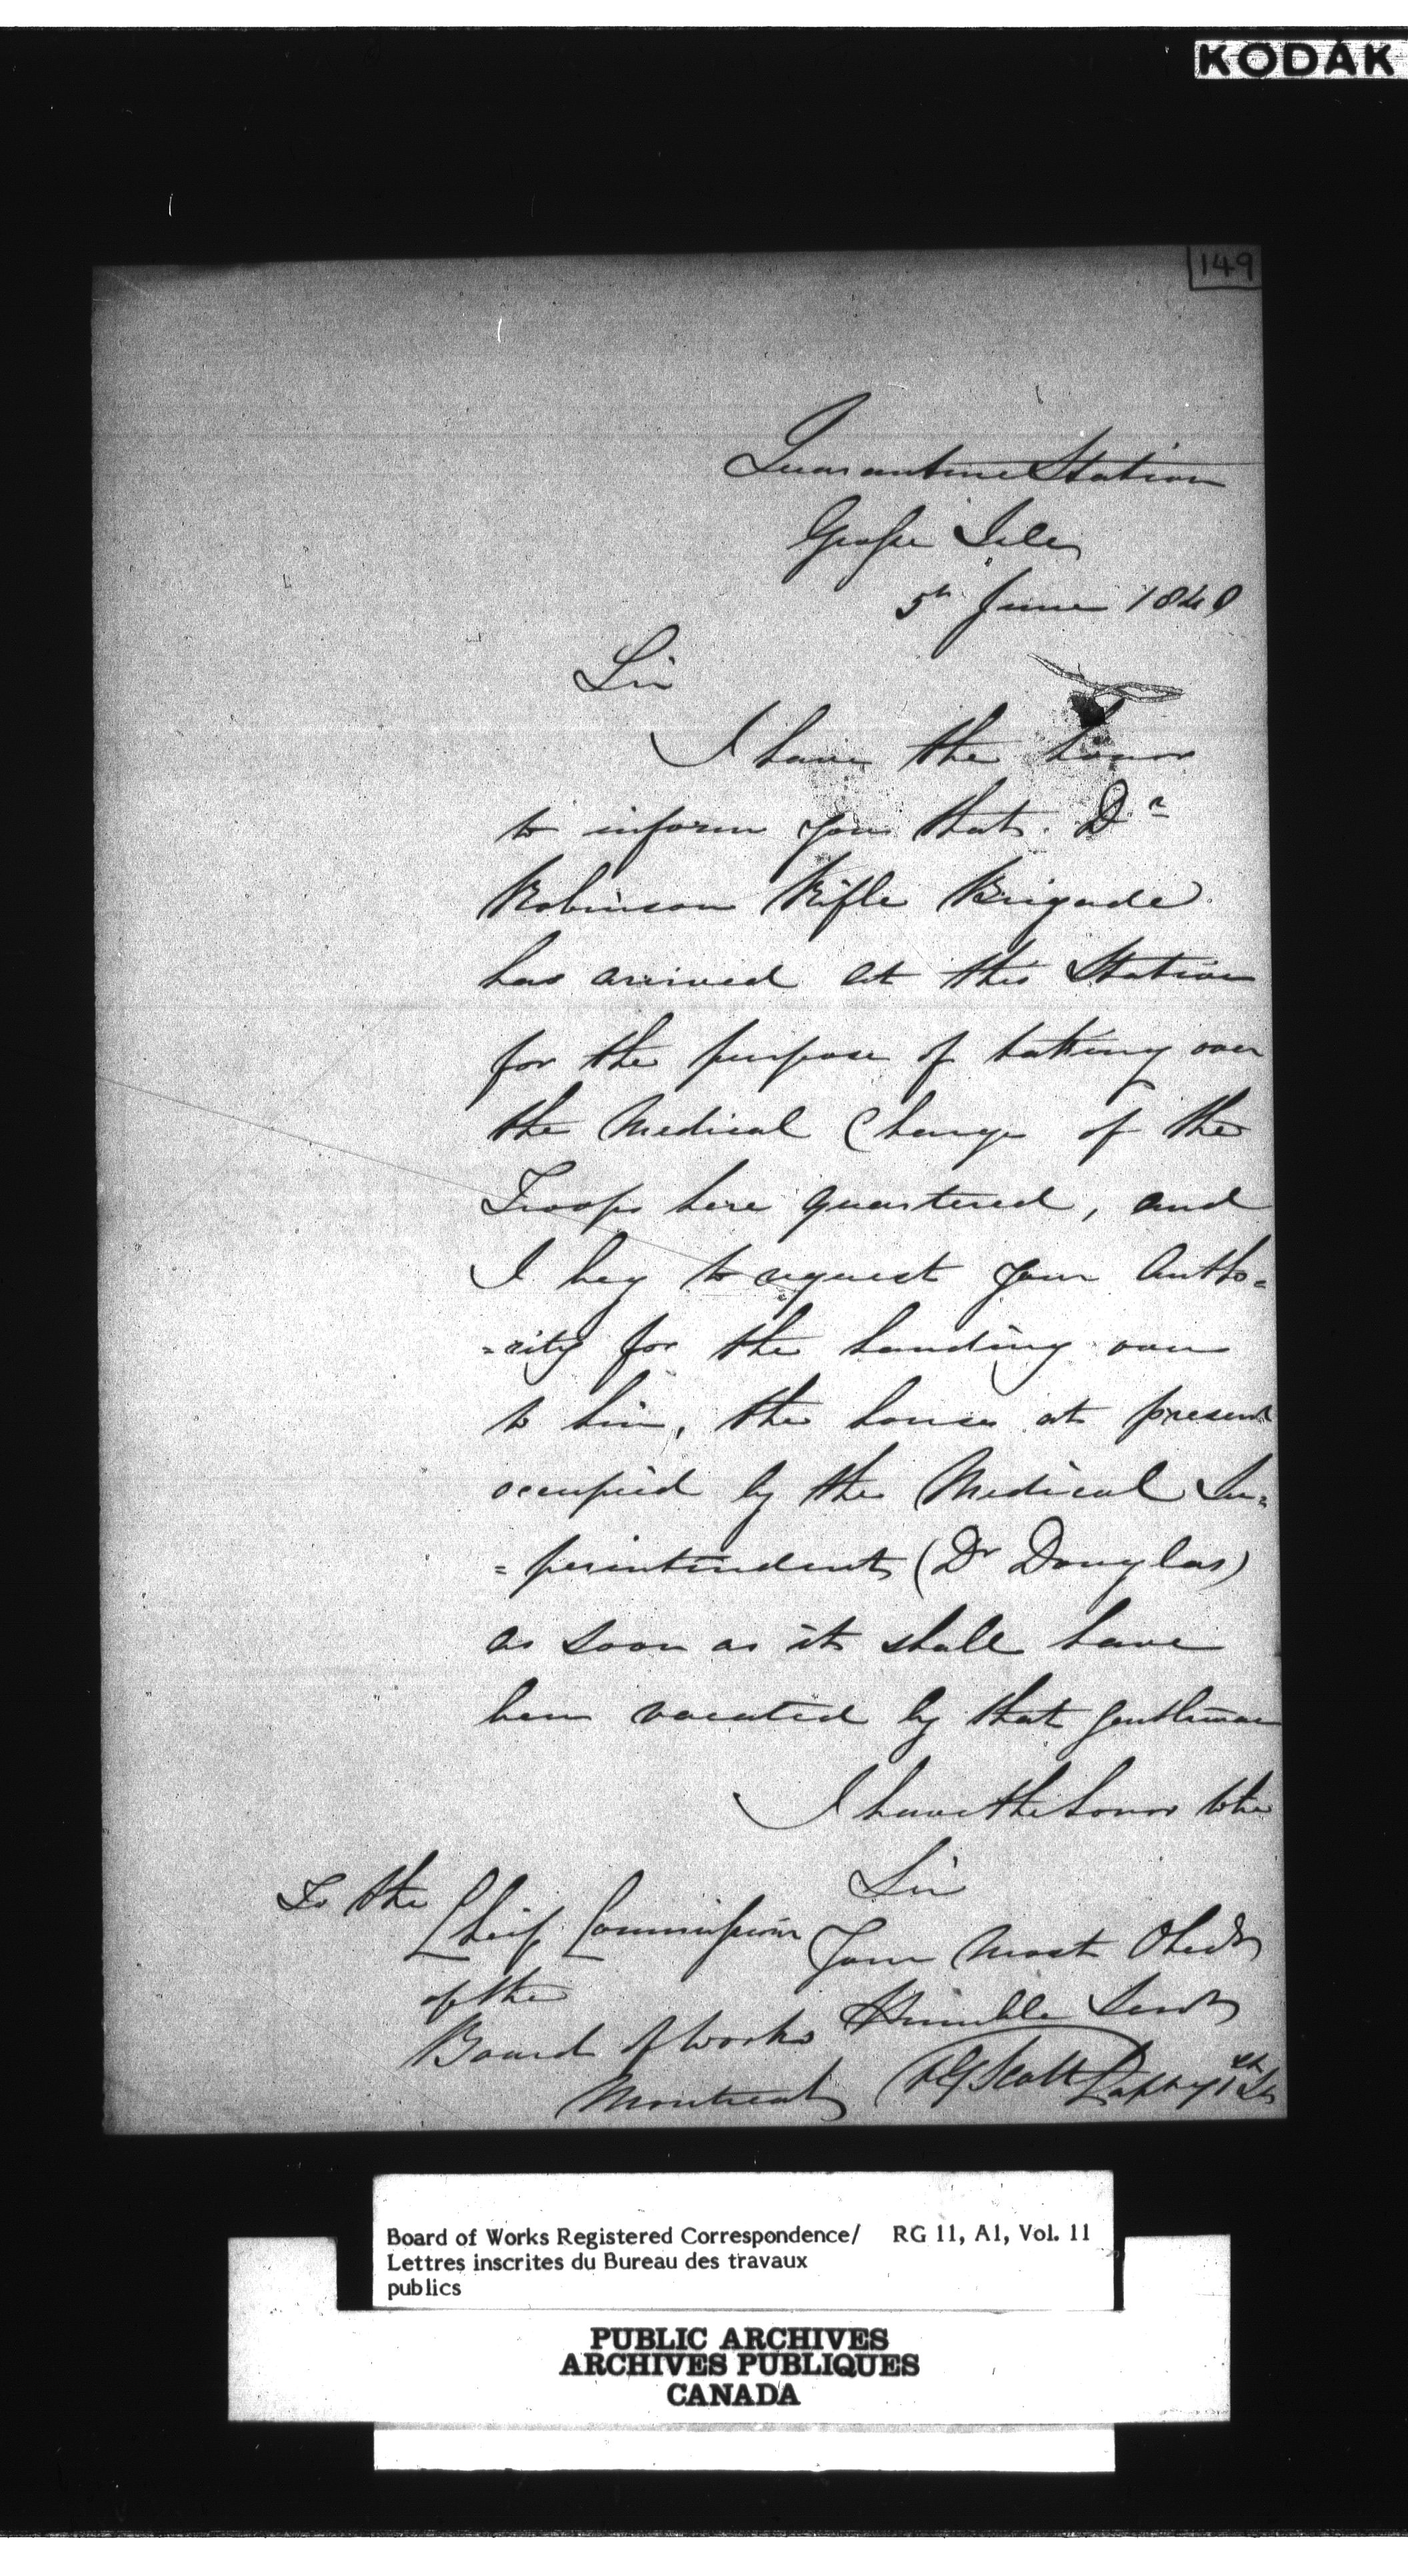 KODAK
149
Quarantine Station
Grosse Isle
5th June 184
Sir
I have the honor
to inform you that Dr
Robinson Rifle Brigade
has arrived at this Station
for the purpose of taking over
the Medical Charge of the
Troops here quartered, and
I beg to request your Autho=
=rity for the handing over
to him, the house at present
occupied by the Medical Su=
=perintendent (Dr Douglas)
as soon as it shall have
been vacated by that gentleman
I have the honor to be
Sir
Your Most Obedt
Humble Servt
Scott
To the
Cheif Commissioner
of the
Board of Works
Montreal
Board of Works Registered Correspondence/ RG 11, A1, Vol. 11
Lettres inscrites du Bureau des travaux
publics
PUBLIC ARCHIVES
ARCHIVES PUBLIQUES
CANADA